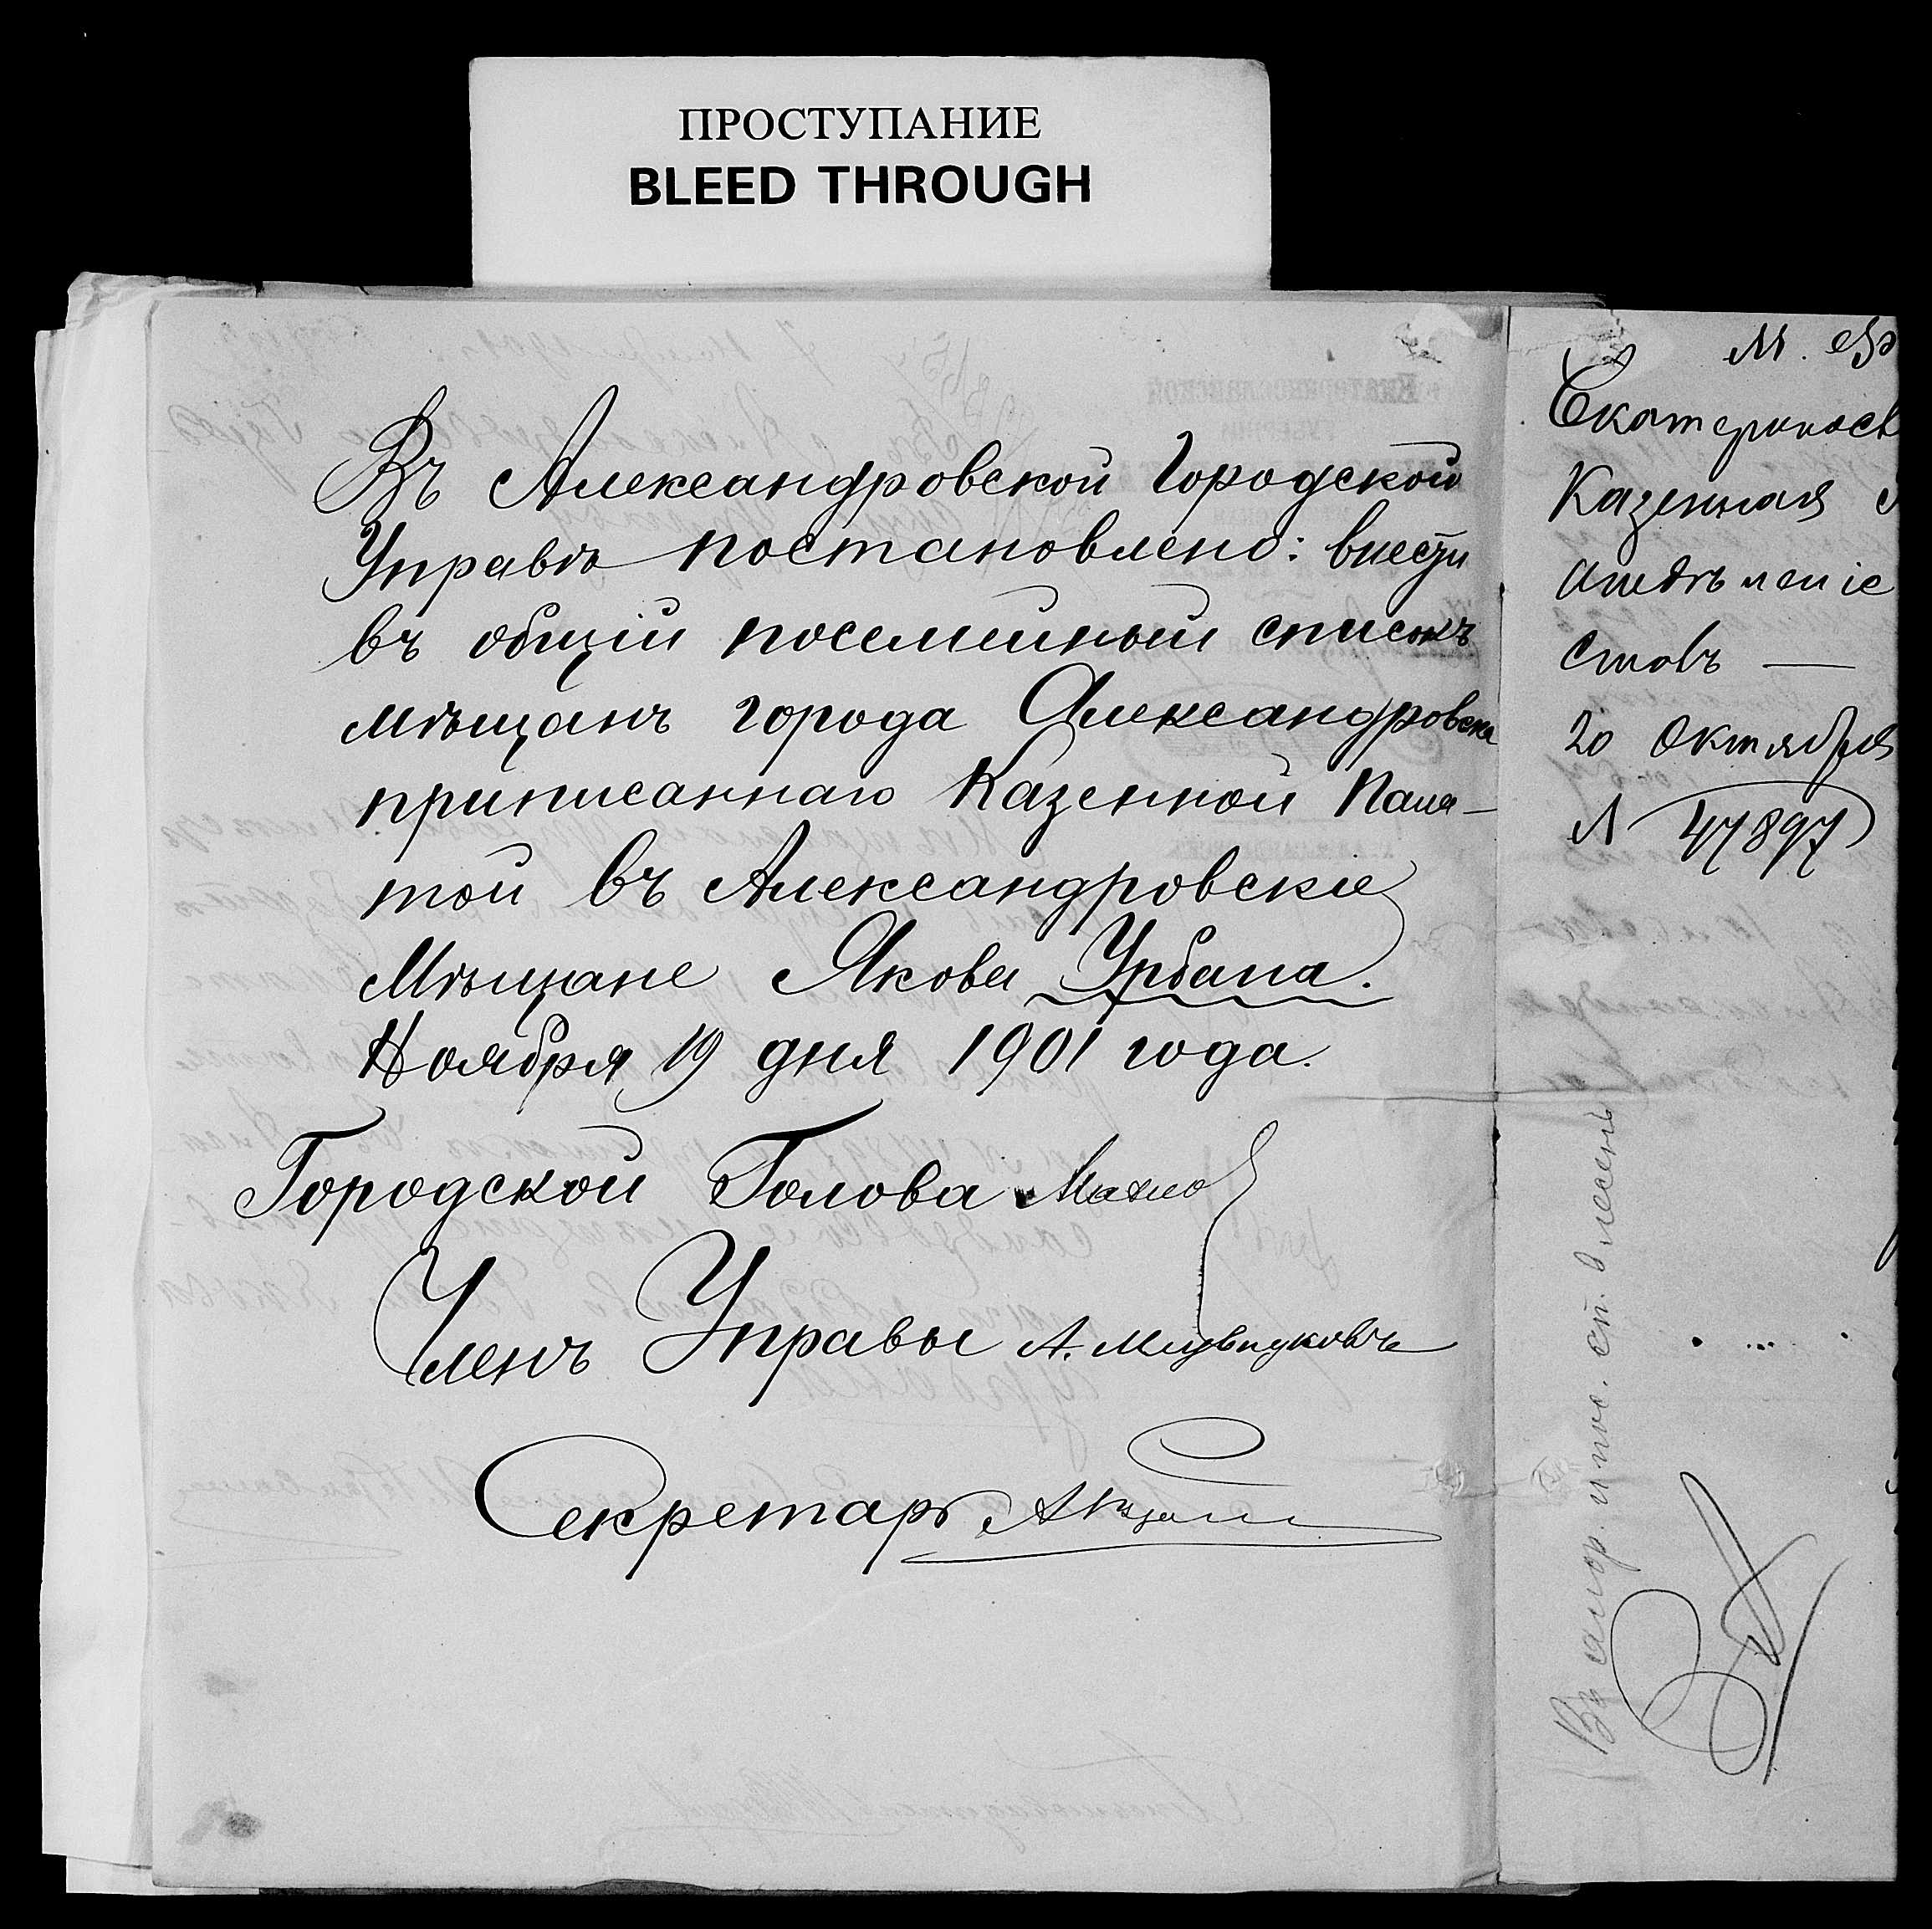 ПРОСТУПАНИЕ
BLEED THROUGH
Въ Александровской Городской
Управѣ постановлено: внести
въ общій посемейный списокъ
мѣщанъ города Александровска
приписаннаго Казенной Пала-
той въ Александровскіе
Мѣщане Якова Урбана.
Ноября 19 дня 1901 года.
Городской Голова
Членъ Управы А.
Секретарь
М.
Екатеринос
Казенная
Отдѣленіе
Столъ —
20 Октября
№ 47897